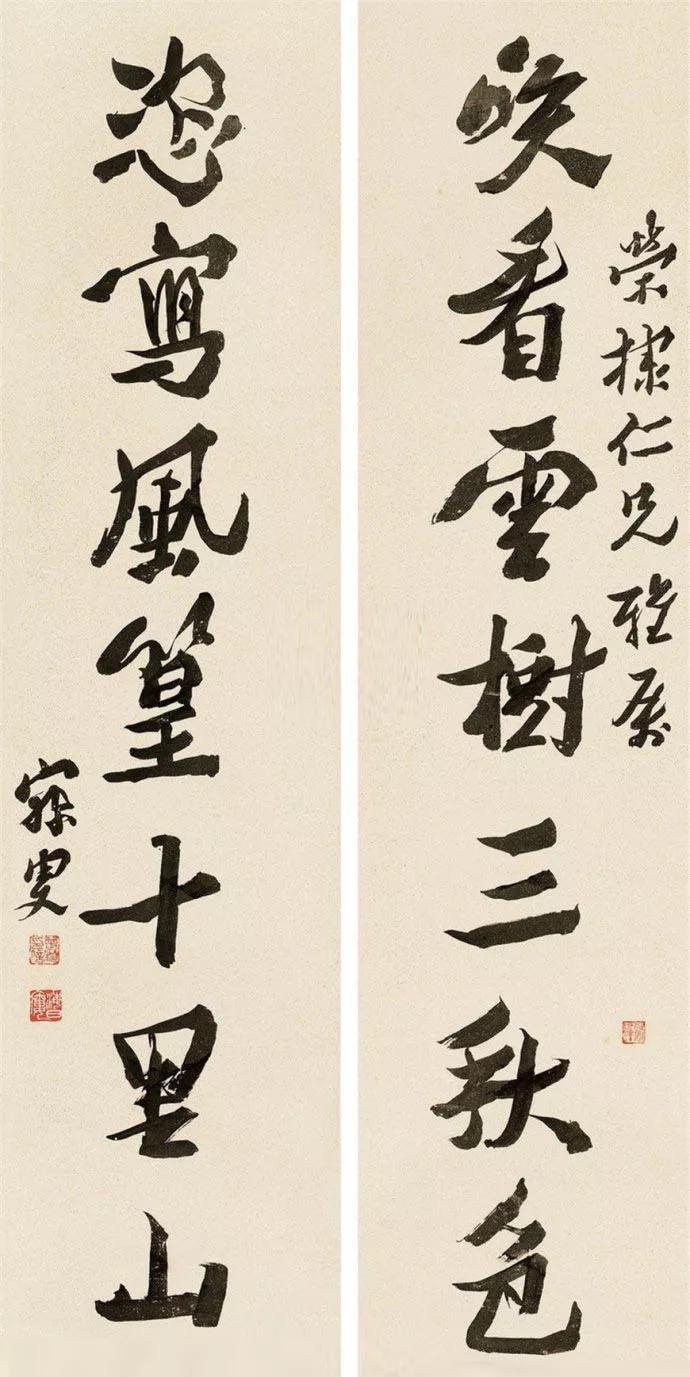 榮棣仁兄雅属
咲看雲樹三秋色
恣寫風篁十里山
寐叟